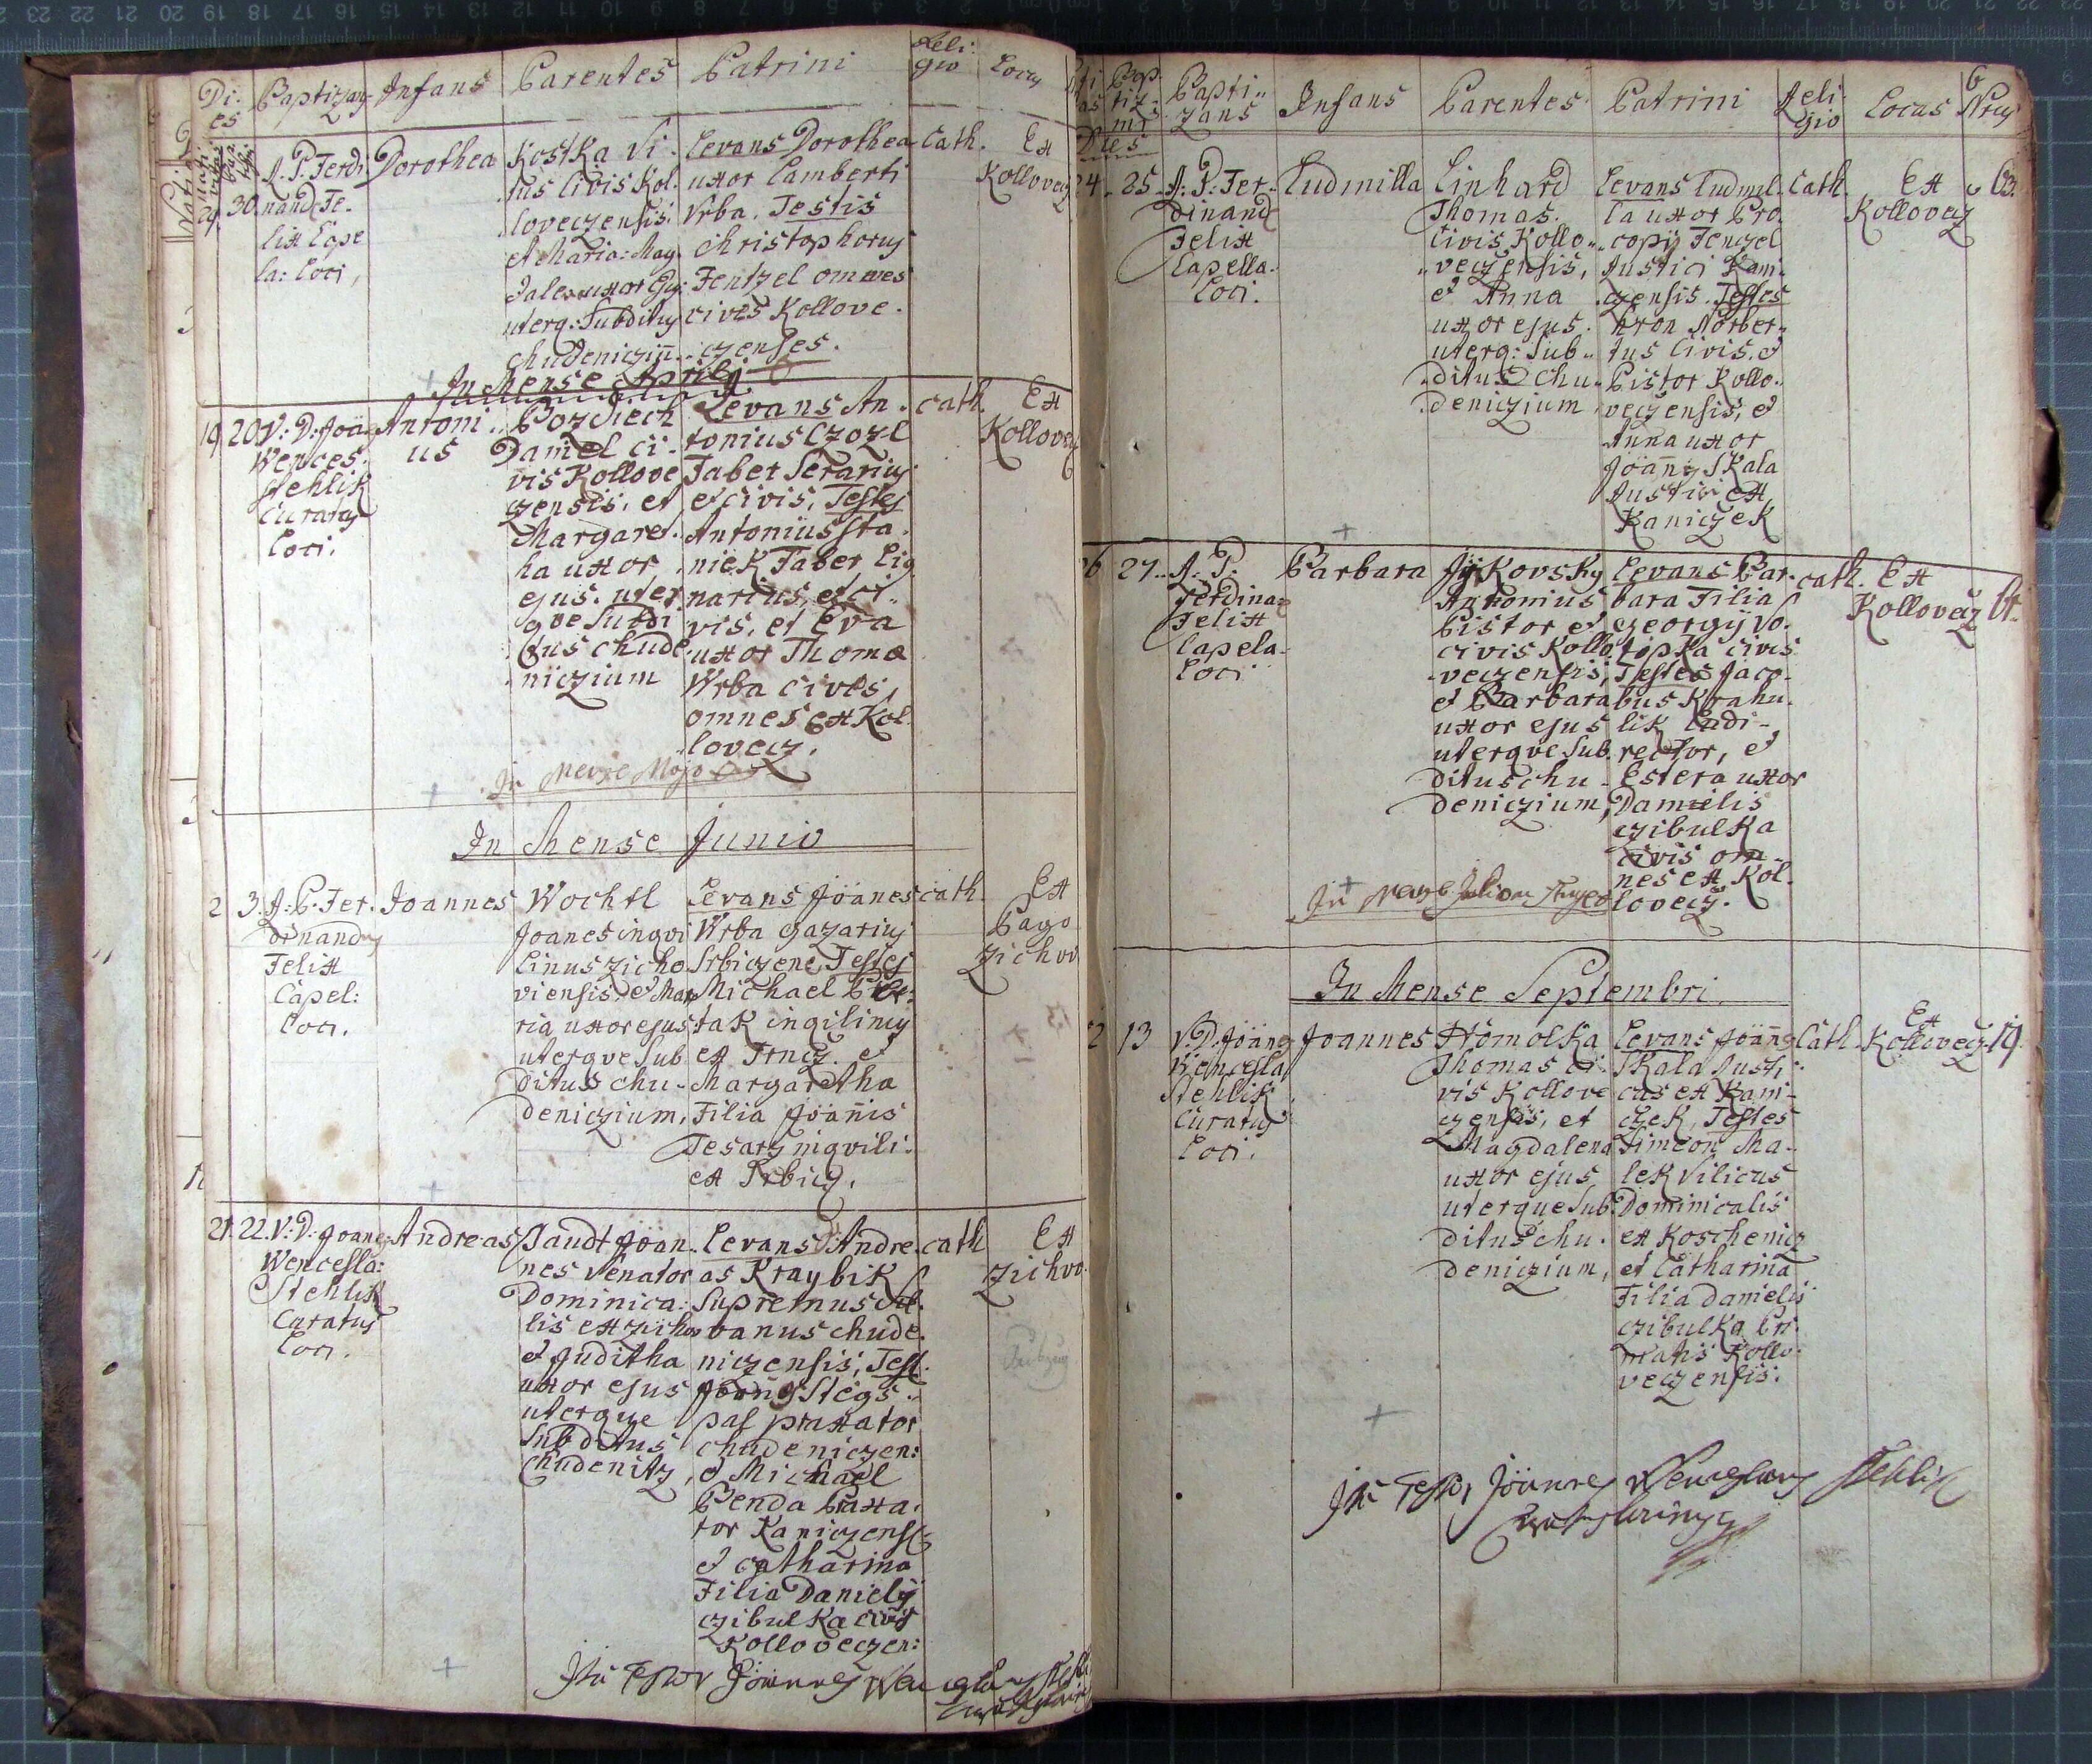 Di-
es
Baptizans
Infans
Parentes
Patrini
Reli-
gio
Locus
29. 30.
A. P. Ferdi-
nand Fe-
lix Cape
la: Loci,
Dorothea
Kostka Vi-
tus Civis Kol-
loveczensis
et Maria Mag-
dalena uxor Ejus
uterq: Subditus
Chudeniczium
Levans Dorothea
uxor Lamberti
Vrba. Testis
Christophorus
Fentzel omnes
cives Kollove-
czenses.
Cath.
Ex
Kollovecz
In Mense Aprili
19. 20
V: D: Joanes
Wences:
Stehlik
Curatus
Loci.
Antoni-
us
Pozdiech
Daniel Ci-
vis Kollove
czensis, et
Margaret-
ha uxor
ejus. uter
qve Subdi
tus Chude
niczium
Levans An-
tonius Czozl
Faber Serarius
et civis, Testes
Antonius Sta-
niek Faber Lig
narius, et ci-
vis, et Eva
uxor Thomæ
Wrba cives,
omnes ex Kol
lovecz.
Cath.
Ex
Kollovecz
In Mense Majo
In Mense Junio
2 3.
A: P. Fer-
dinandus
Felix
Capel:
Loci.
Joannes
Wochtl
Joanes inqvi
linus Zicho
viensis, et Ma
ria uxor ejus
uterqve Sub
ditus Chu-
deniczium,
Levans Joanes
Wrba Gazarius
Srbiczene, Testes
Michael
tak inqilinus
ex Trncz. et
Margaretha
Filia Joanis
Tesarz niqvili:
ex Srbicz.
Cath.
Ex
Pago
Zichov
21. 22.
V: D: Joanes
Wencesla:
Stehlik
Curatus
Loci.
Andreas
Joan-
nes Venator
Dominica:
lis ex Zichov
et Juditha
uxor ejus
uterque
Subditus
Chudenitz,
Levans Andre-
as Kraybik
Supremus Sil-
vanus Chude-
niczensis, Test.
Joanes Stegs-
pas praxator
Chudeniczen:
et Michael
Benda Braxa-
tor Kaniczens:
et Catharina
Filia Danielis
Czibulka civis
Kolloveczen:
Cath
Ex
Zichov
Ita Testor Joannes Wenceslaus Stehlik
Bap-
tiz-
mi
Dies
Bapti-
zans
Infans
Parentes
Patrini
Reli-
gio
Locus
Nrus
24. 25.
A: P: Fer-
dinand
Felix
Capella-
Loci.
Ludmilla
Linhard
Thomas.
Civis Kollo-
veczensis,
et Anna
uxor ejus.
uterq: Sub-
ditus Chu-
deniczium
Levans Ludmil-
la uxor Pro-
copij Fenczel
Justici Kani-
czensis. Testes
Kron Norber-
tus Civis, et
Pistor Kollo-
veczensis, et
Anna uxor
Joannis Skala
Justici ex
Kaniczek
Cath.
Ex
Kollovecz
63.
26 27.
A. P.
Ferdinand
Felix
Capela-
Loci
Barbara
Jÿkovsky
Antonius
Pistor et
Civis Kollo
veczensis,
et Barbara
uxor ejus
uterqve Sub
ditus Chu-
deniczium,
Levans Bar-
bara Filia
Georgij Vo-
topka Civis
Testes Jaco-
bus Krahu-
lik Ludi-
rector, et
Estera uxor
Danielis
Czibulka
Civis om-
nes ex Kol-
lovecz.
Cath.
Ex
Kollovecz
In Mense Septembri.
12 13
V: D: Joanes
Wencesla
Stehlik
Curatus
Loci.
Joannes
Homolka
Thomas Ci-
vis Kollove
czensis, et
Magdalena
uxor ejus
uterque Sub
ditus Chu-
deniczium,
Levans Joannes
Skala Justi-
cus ex Kani-
czek, Testes
Simeon Ma-
lek Vilicus
Dominicalis
ex Koschenicz
et Catharina
Filia Danielis
Czibulka Pri-
matis Kollo-
veczensis.
Cath.
Ex
Kollovecz
19.
Ita Testor Joannes Wenceslaus Stehlik